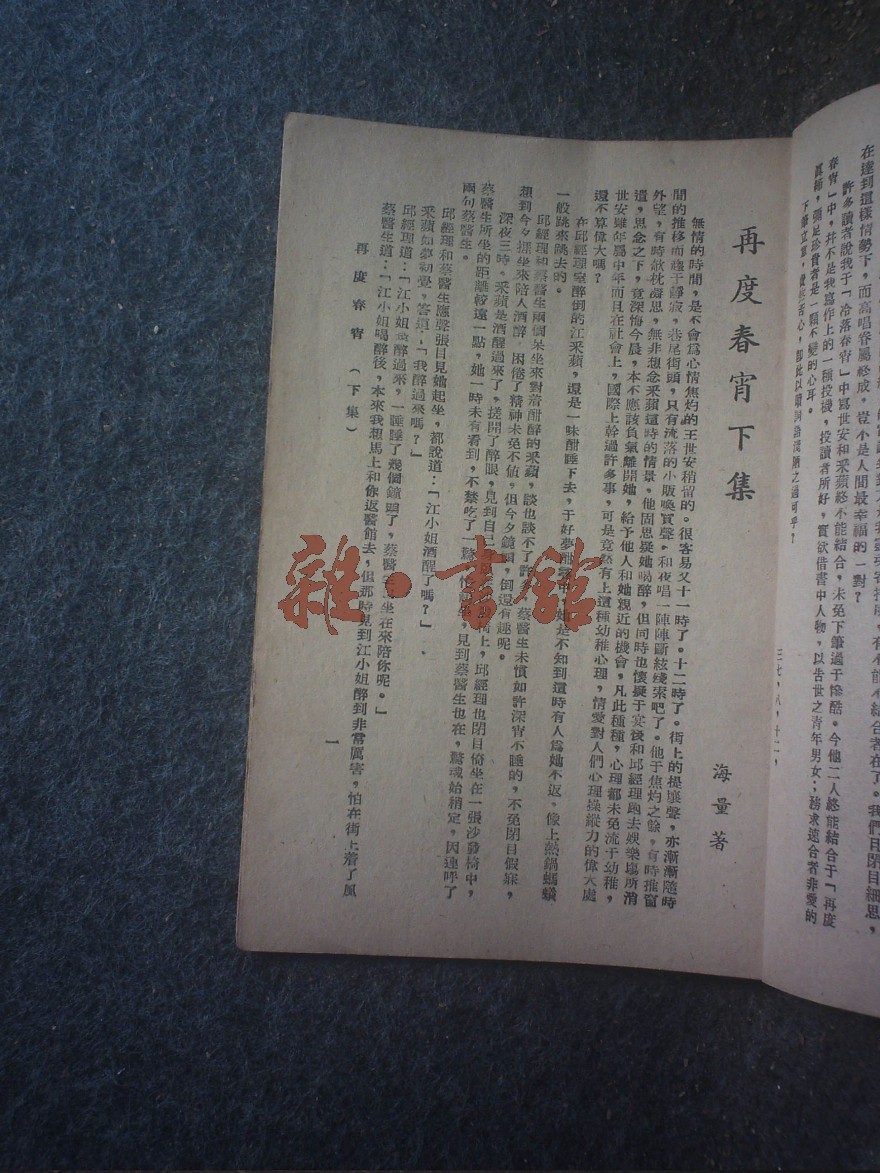 在達到這樣情勢下,而高唱眷屬終成,豈不是人間最幸福的一對?
許多讀者說我于「冷落春宵」中寫世安和采蘋終不能結合,未免下筆過于慘酷。今他二人終能結合于「再度
春宵」中,幷不是我寫作上的一種投機,投讀者所好,實欲借書中人物,以告世之青年男女;務求速合者非愛的
眞締,彌足珍貴者是一顆不變的心耳。
三七,八,十二,
再度春宵下集
海量著
無情的時間,是不會爲心情焦灼的王世安稍留的。很容易又十一時了。十二時了。街上的擾嚷聲,亦漸漸隨時
間的推移而趨于靜寂,巷尾街頭,只有流落的小販喚賣聲,和夜唱一陣陣斷絃殘索吧了。他于焦灼之餘,有時推窗
外望,有時欹枕濤思,無非想念采蘋這時的情景,他固思疑她喝醉,但同時也懷疑于宴後和邱經理跑去娛樂塲所消
遣,思念之下,竟深悔今晨,本不應該負氣離開她,給予他人和她親近的機會,凡此種種,心理都未免流于幼稚,
世安雖年屬中年而且在社會上,國際上幹過許多事,可是竟然有上這種幼稚心理,情愛對人們心理操縱力的偉大處
還不算偉大嗎?
在邱經理室醉倒的江采蘋,還是一味酣睡下去,于好夢酣 中,她是不知到這時有人爲她不返,像上熱鍋螞蟻
一般跳來跳去的。
邱經理和蔡醫生兩個呆坐來對着酣醉的采蘋,談也談不了許多,蔡醫生未慣如許深宵不睡的,不免閉目假寐,
想到今夕 坐來陪人酒醉,因倦了精神未免不値,但今夕鏡頭,倒還有趣呢。
深夜三時。采蘋是酒醒過來了,搓開了醉眼,見到自己 椅上,邱經理也閉目倚坐在一張沙發椅中,
蔡醫生所坐的距離較遠一點,她一時未有看到,不禁吃了一驚, 起坐,見到蔡醫生也在,驚魂始稍定,因連呼了
兩句蔡醫生。
邱經理和蔡醫生應聲張目見她起坐,都說道:「江小姐酒醒了嗎?」
采蘋如夢初覺,答道:「我醉過來嗎?」
邱經理道:「江小姐 醉過來,一睡睡了幾個鐘頭了,蔡醫生 坐在來陪你呢。」
蔡醫生道:「江小姐喝醉後,本來我想馬上和你返醫館去,但那時見到江小姐醉到非常厲害,怕在街上着了風
再度春宵(下集)
一
雜·書館